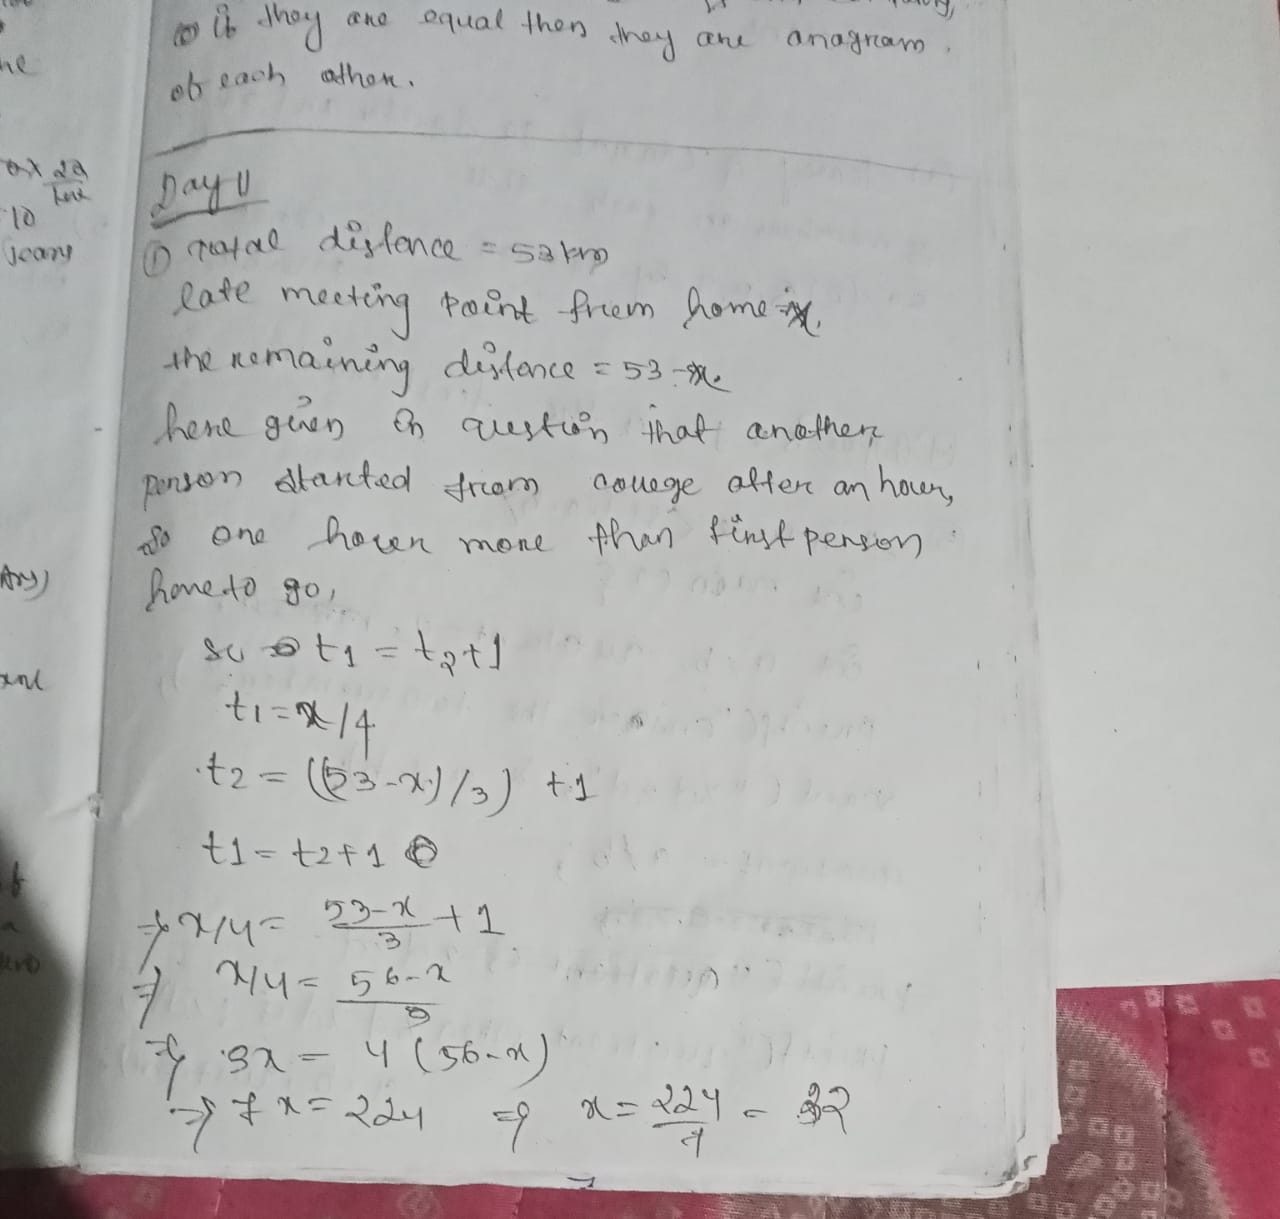 if they are equal then they are anagram.
of each other.
he
22
10
Day 11
① Total distance = 53 km
late meeting point from home = x.
the remaining distance = 53 - x.
here given in question that another
person started from college after an hour,
so one hour more than first person
have to go,
so t1 = t2+1
t1 = x/4
t2 = ((53-x)/3) + 1
t1 = t2+1
⇒ x/4 = 53-x/3 + 1
⇒ x/4 = 56-x/3
⇒ 3x = 4(56-x)
⇒ 7x = 224 ⇒ x = 224/7 = 32
Ans)